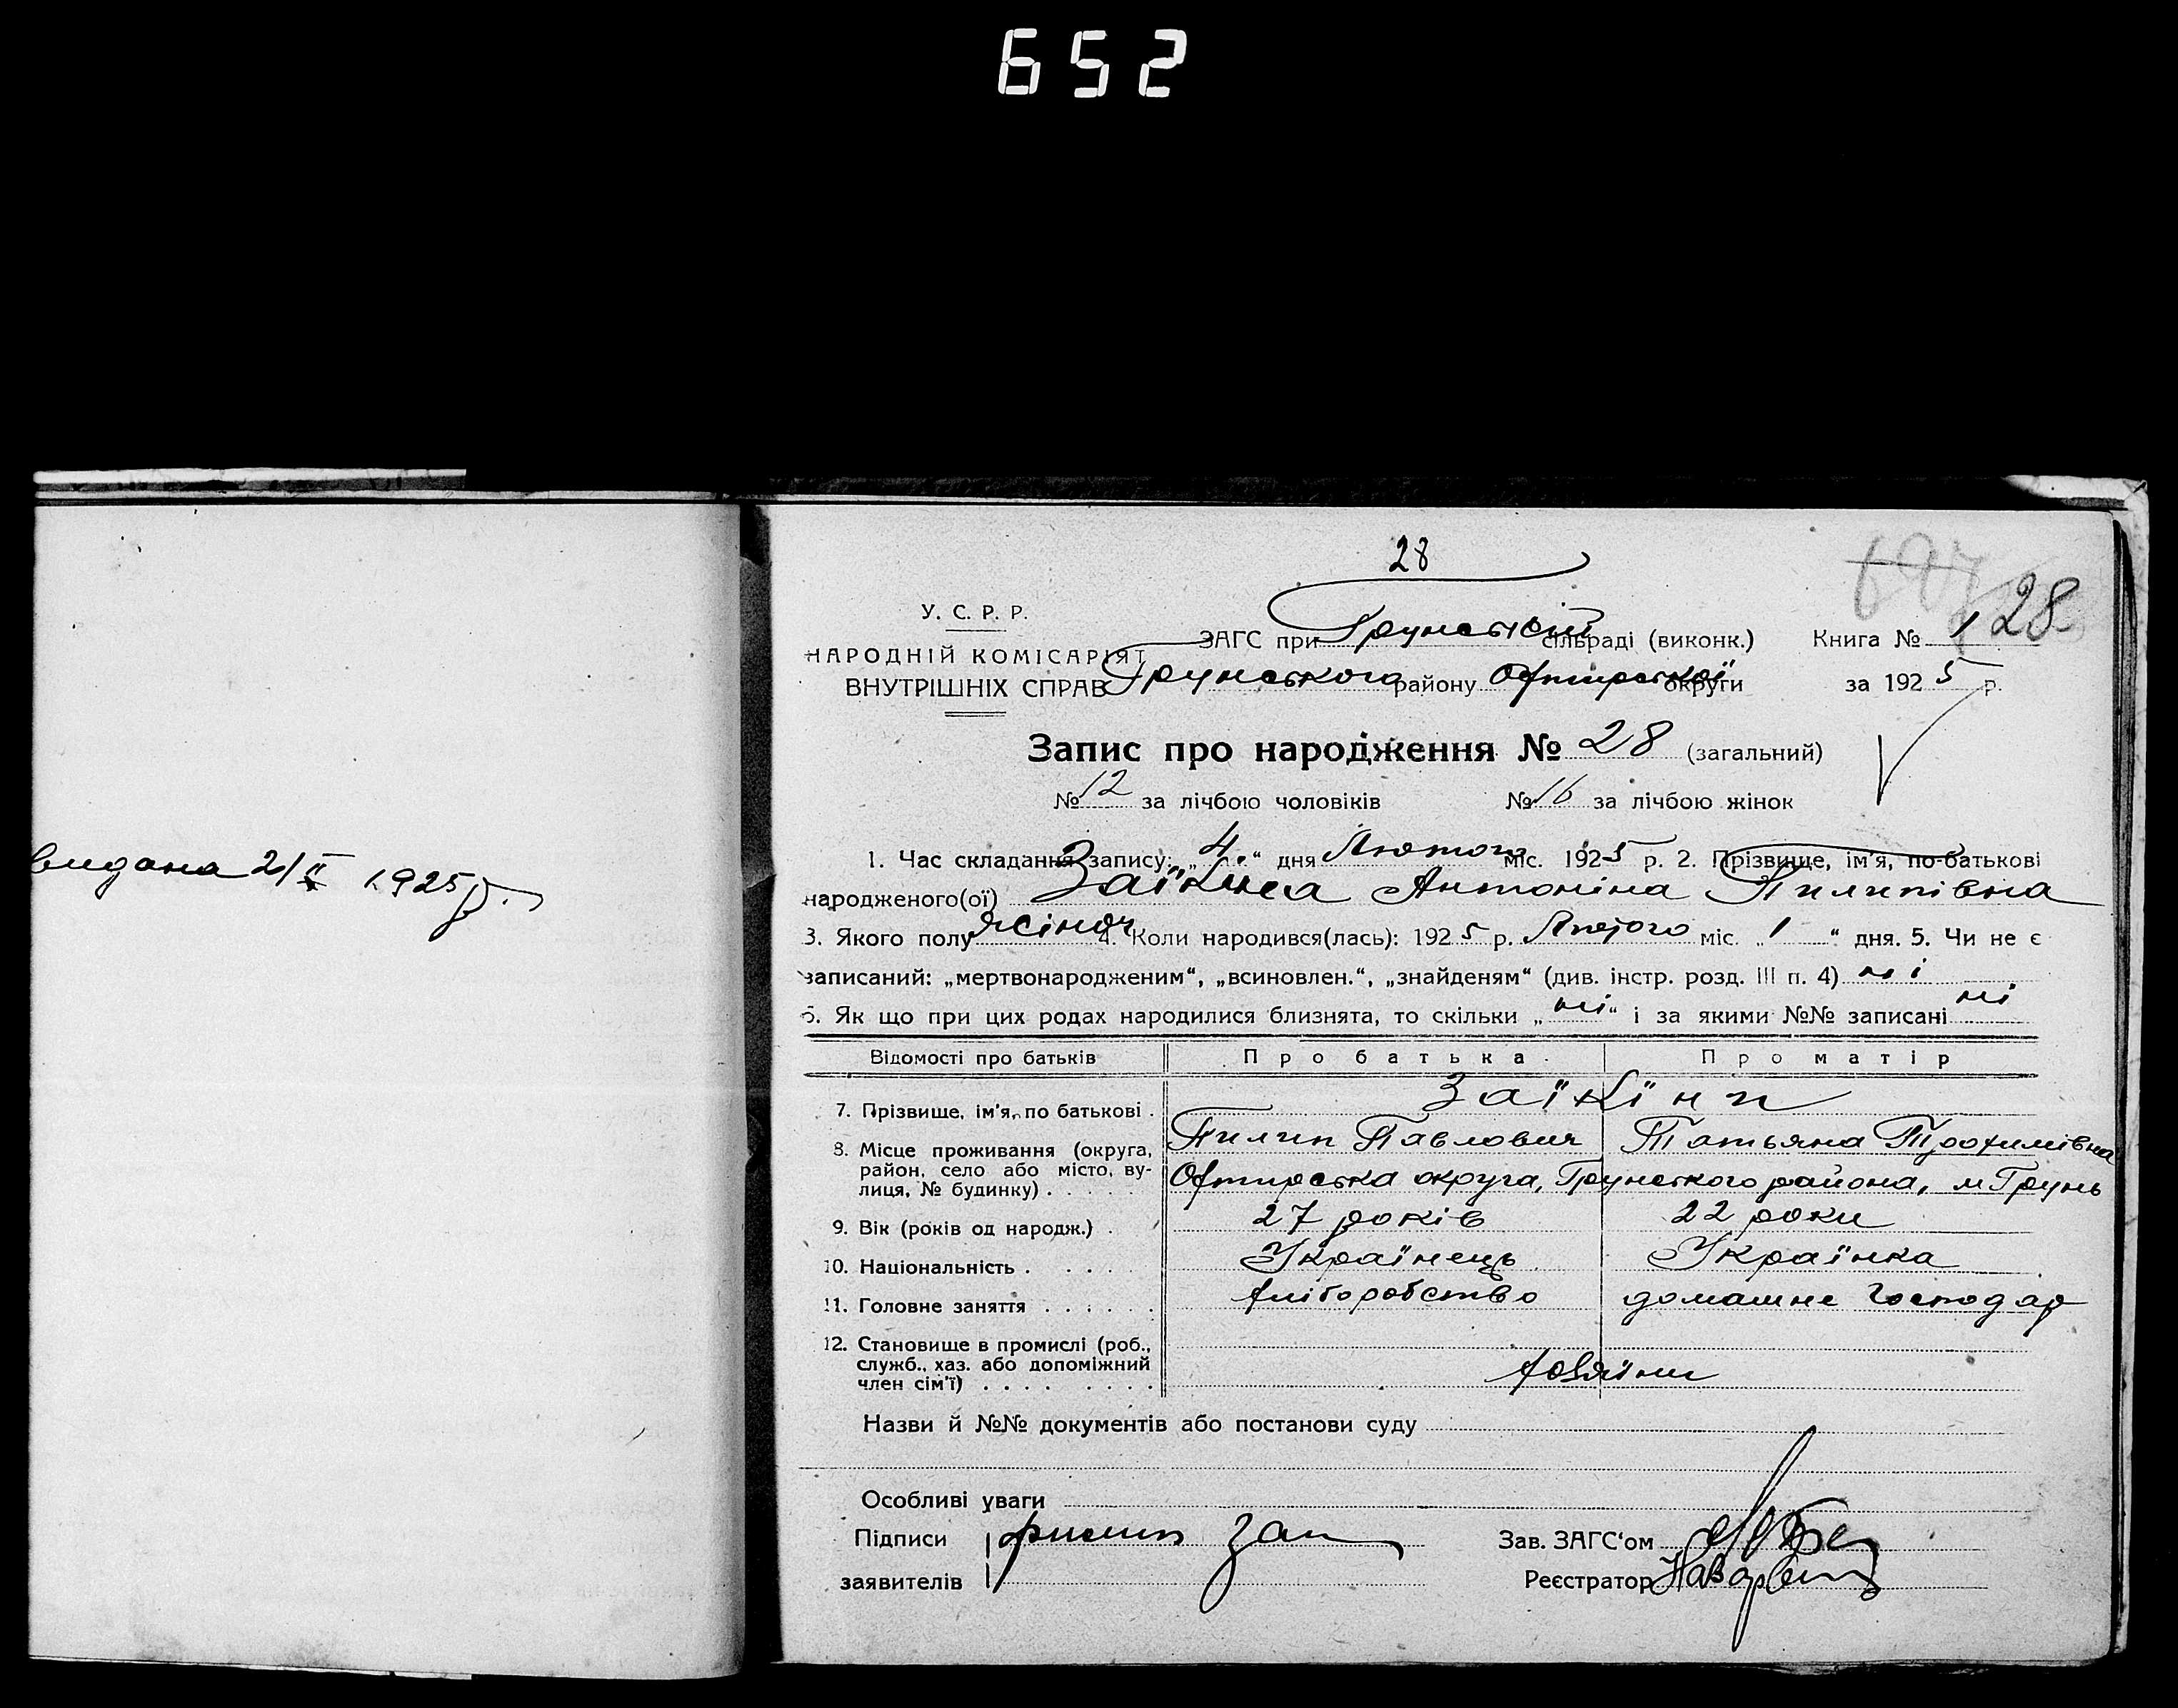 652
видана 2/II 1925 р.
28
28
У. С. Р. Р.
НАРОДНІЙ КОМІСАРІЯТ
ВНУТРІШНІХ СПРАВ
ЗАГС при Грунській сільраді (виконк.) Книга № 1
Грунського району Охтирської округи за 1925 р.
Запис про народження № 28 (загальний)
№ 12 за лічбою чоловіків № 16 за лічбою жінок
1. Час складання запису: „4“ дня Лютого міс. 1925 р. 2. Прізвище, ім'я, по-батькові
народженого(ої) Заїкина Антоніна Пилипівна
3. Якого полу жіноч 4. Коли народився(лась): 1925 р. Лютого міс. „1“ дня. 5. Чи не є
записаний: „мертвонародженим“, „всиновлен.“, „знайденям“ (див. інстр. розд. III п. 4) ні
6. Як що при цих родах народилися близнята, то скільки „ні“ і за якими №№ записані ні
Відомості про батьків Про батька Про матір
Заїкїни
7. Прізвище, ім'я, по батькові
Пилип Павлович Татьяна Трохимівна
8. Місце проживання (округа,
район, село або місто, ву-
лиця, № будинку)
Охтирська округа, Грунського района, м Грунь
9. Вік (років од народж.) 27 років 22 роки
10. Національність Українець Українка
11. Головне заняття хліборобство домашнє господар
12. Становище в промислі (роб.,
служб., хаз. або допоміжний
член сім'ї)
хазяїни
Назви й №№ документів або постанови суду
Особливі уваги
Підписи
заявителів
Зав. ЗАГС'ом
Реєстратор